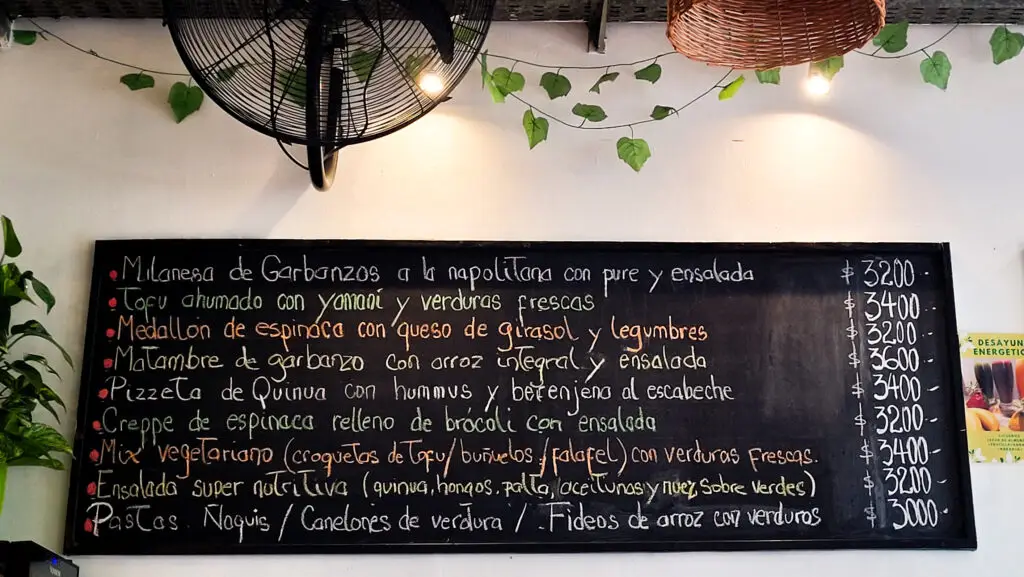 • Milanesa de Garbanzos a la napolitana con pure y ensalada $ 3200.-
• Tofu ahumado con yamaní y verduras frescas $ 3400
• Medallon de espinaca con queso de girasol y legumbres $ 3200.-
• Matambre de garbanzo con arroz integral y ensalada $ 3600
• Pizzeta de Quinua con hummus y berenjena al escabeche $ 3400-
• Creppe de espinaca relleno de brócoli con ensalada $ 3200-
• Mix vegetariano (croquetas de Tofu/buñuelos/falafel) con verduras frescas. $ 3400-
• Ensalada super nutritiva (quinua, hongos, palta, aceitunas y nuez sobre verdes) $ 3200-
• Pastas. Ñoquis / Canelones de verdura / . Fideos de arroz con verduras $ 3000-
DESAYUN
ENERGETIC